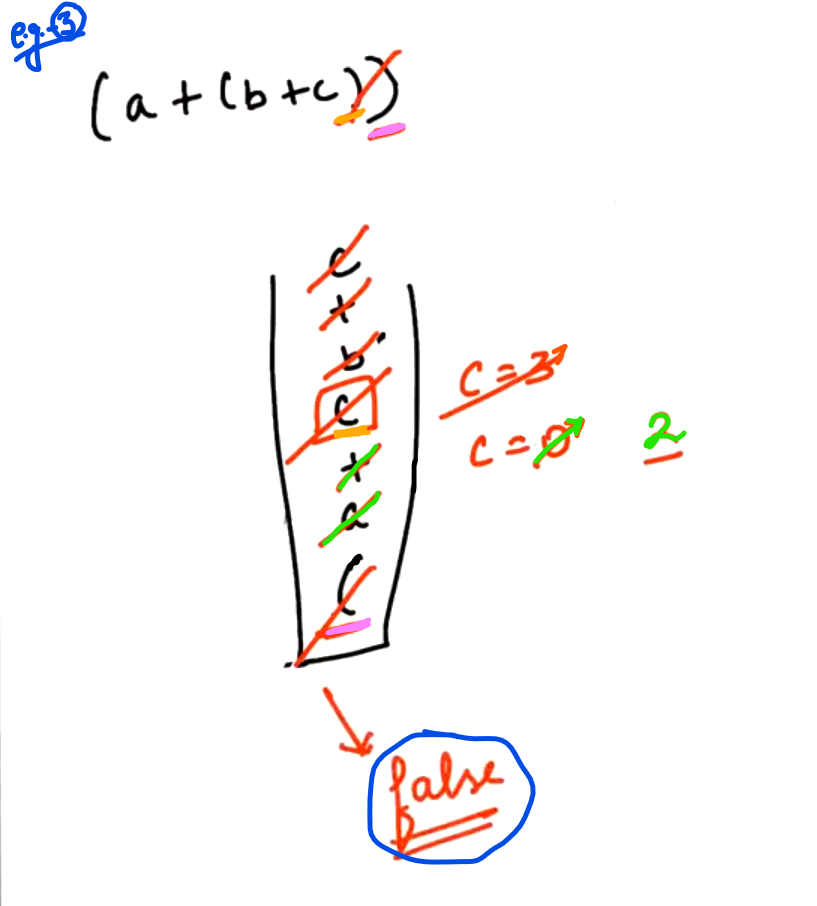 e.g. ③
(a + (b + c))
c
+
b
(
+
a
(
c = 3
c = 0 2
false